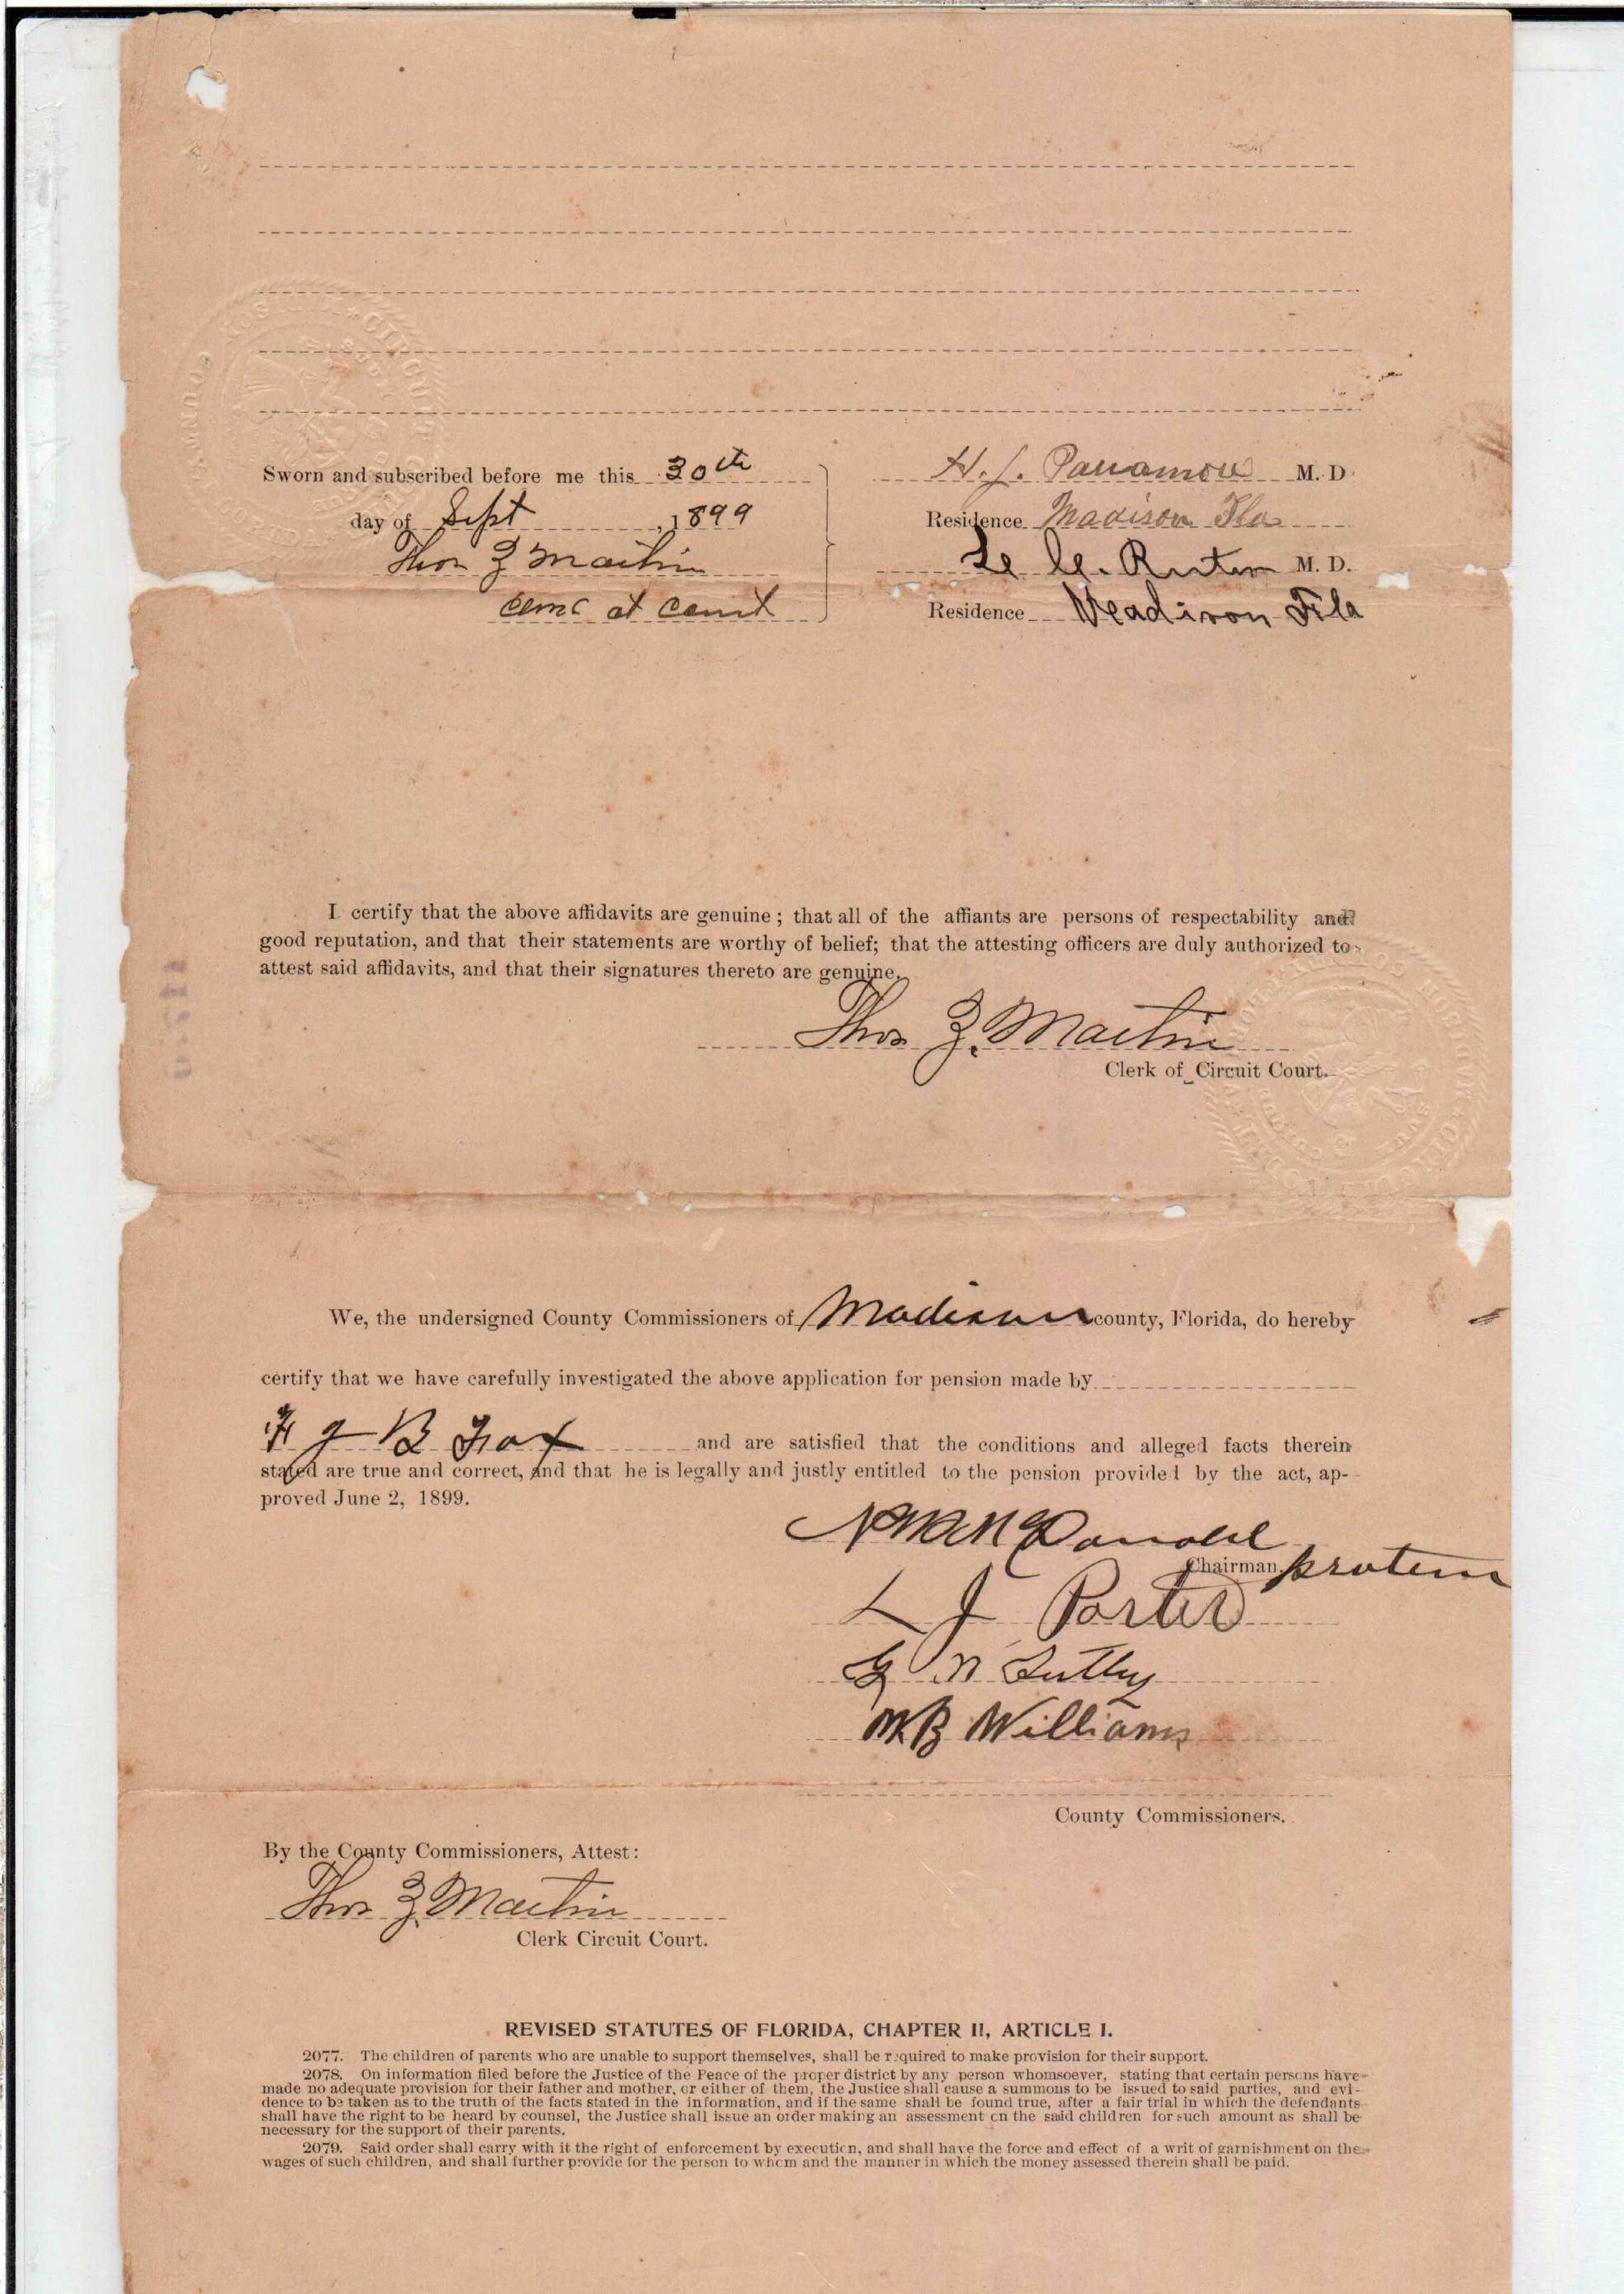 Sworn and subscribed before me this 30th
day of Sept, 1899
Thos Z Martin
at Court
H. J. Parramore M. D.
Residence Madison Fla
M. D.
Residence Madison Fla
I certify that the above affidavits are genuine; that all of the affiants are persons of respectability and
good reputation, and that their statements are worthy of belief; that the attesting officers are duly authorized to
attest said affidavits, and that their signatures thereto are genuine.
Thos Z. Martin
Clerk of Circuit Court.
We, the undersigned County Commissioners of Madison county, Florida, do hereby
certify that we have carefully investigated the above application for pension made by
J B and are satisfied that the conditions and alleged facts therein
stated are true and correct, and that he is legally and justly entitled to the pension provided by the act, ap-
proved June 2, 1899.
McDonald
Chairman protem
L J Porter
N
WB Williams
County Commissioners.
By the County Commissioners, Attest:
Thos Z. Martin
Clerk Circuit Court.
REVISED STATUTES OF FLORIDA, CHAPTER II, ARTICLE I.
2077. The children of parents who are unable to support themselves, shall be required to make provision for their support.
2078. On information filed before the Justice of the Peace of the proper district by any person whomsoever, stating that certain persons have
made no adequate provision for their father and mother, or either of them, the Justice shall cause a summons to be issued to said parties, and evi-
dence to be taken as to the truth of the facts stated in the information, and if the same shall be found true, after a fair trial in which the defendants
shall have the right to be heard by counsel, the Justice shall issue an order making an assessment on the said children for such amount as shall be
necessary for the support of their parents.
2079. Said order shall carry with it the right of enforcement by execution, and shall have the force and effect of a writ of garnishment on the
wages of such children, and shall further provide for the person to whom and the manner in which the money assessed therein shall be paid.